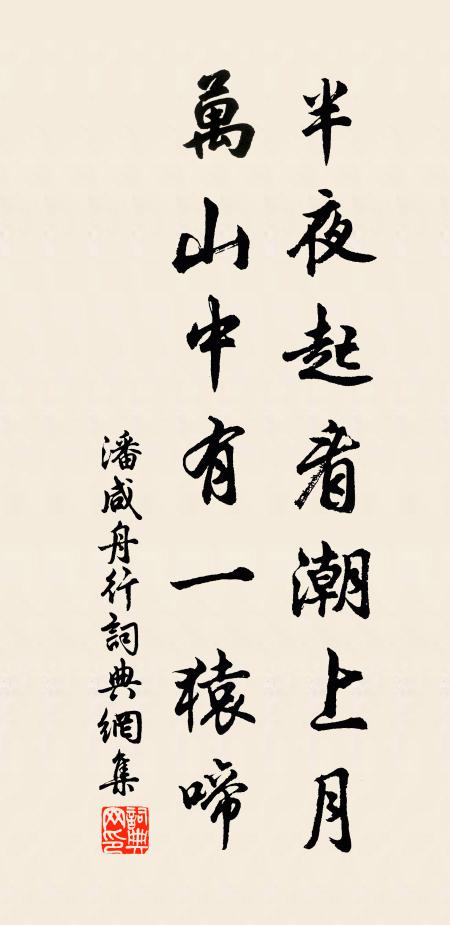 半夜起看潮上月
萬山中有一猿啼
潘咸舟行詞典網集
詞典网印